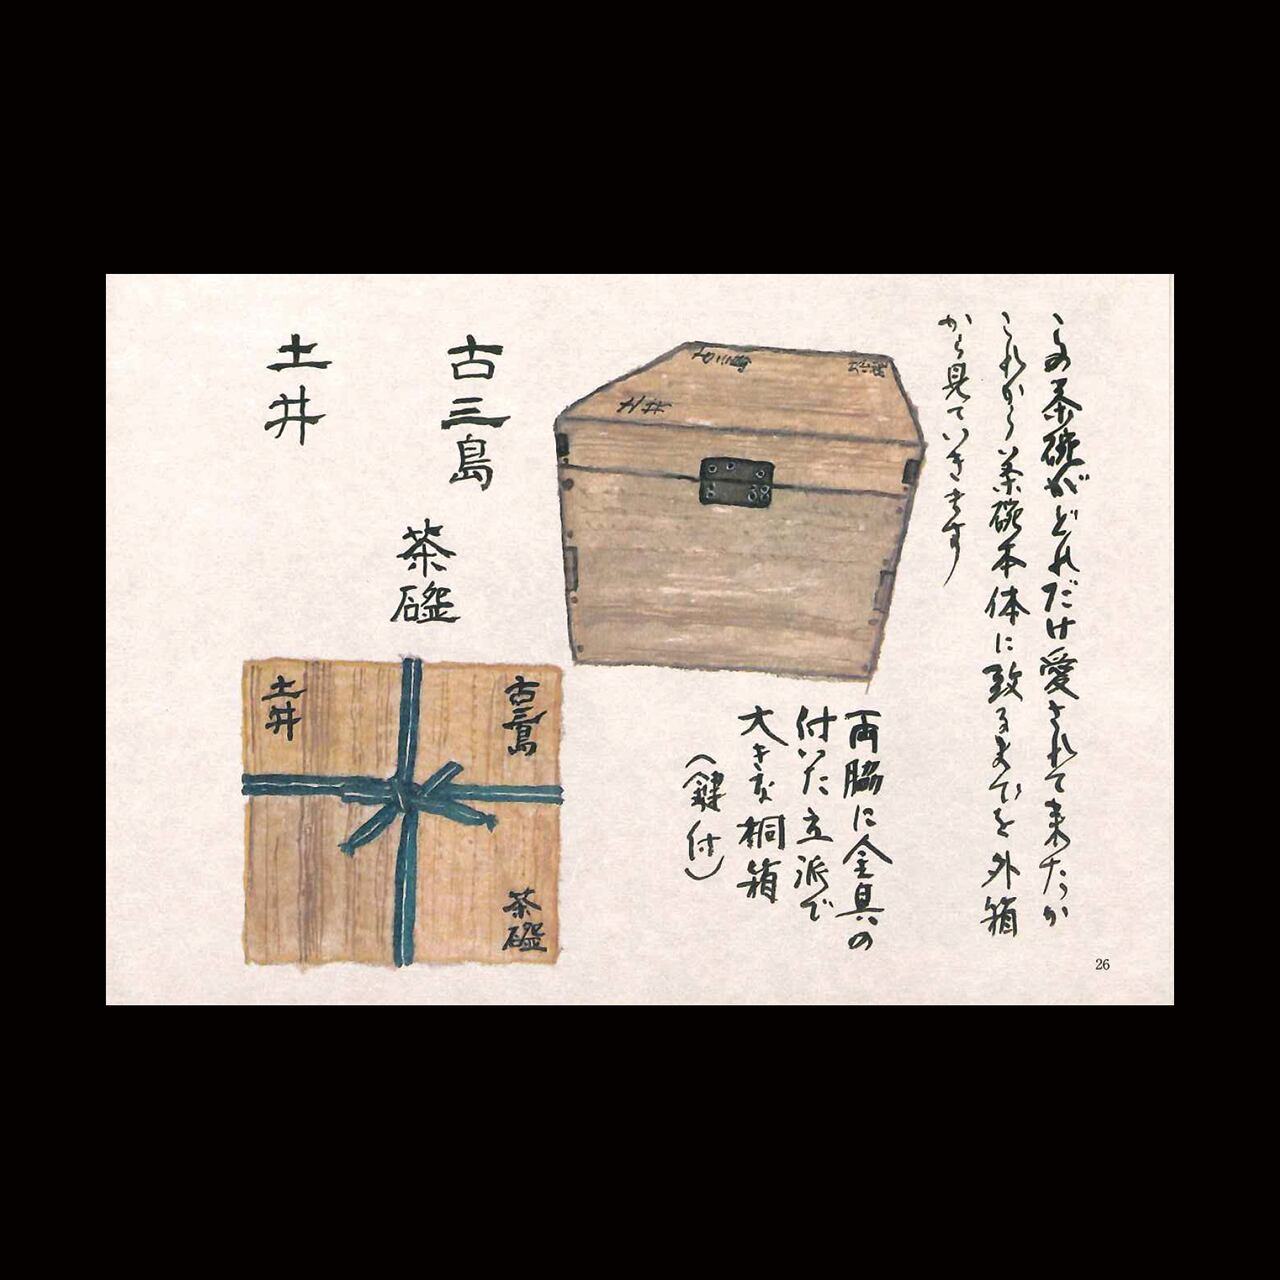 この茶碗がどれだけ愛されて来たか
これから茶碗本体に致るまでを外箱
から見ていきます
両脇に金具の
付いた立派で
大きな桐箱
(鍵付)
古三島
茶碗
土井
古三島
土井
古三島
茶碗
土井
26